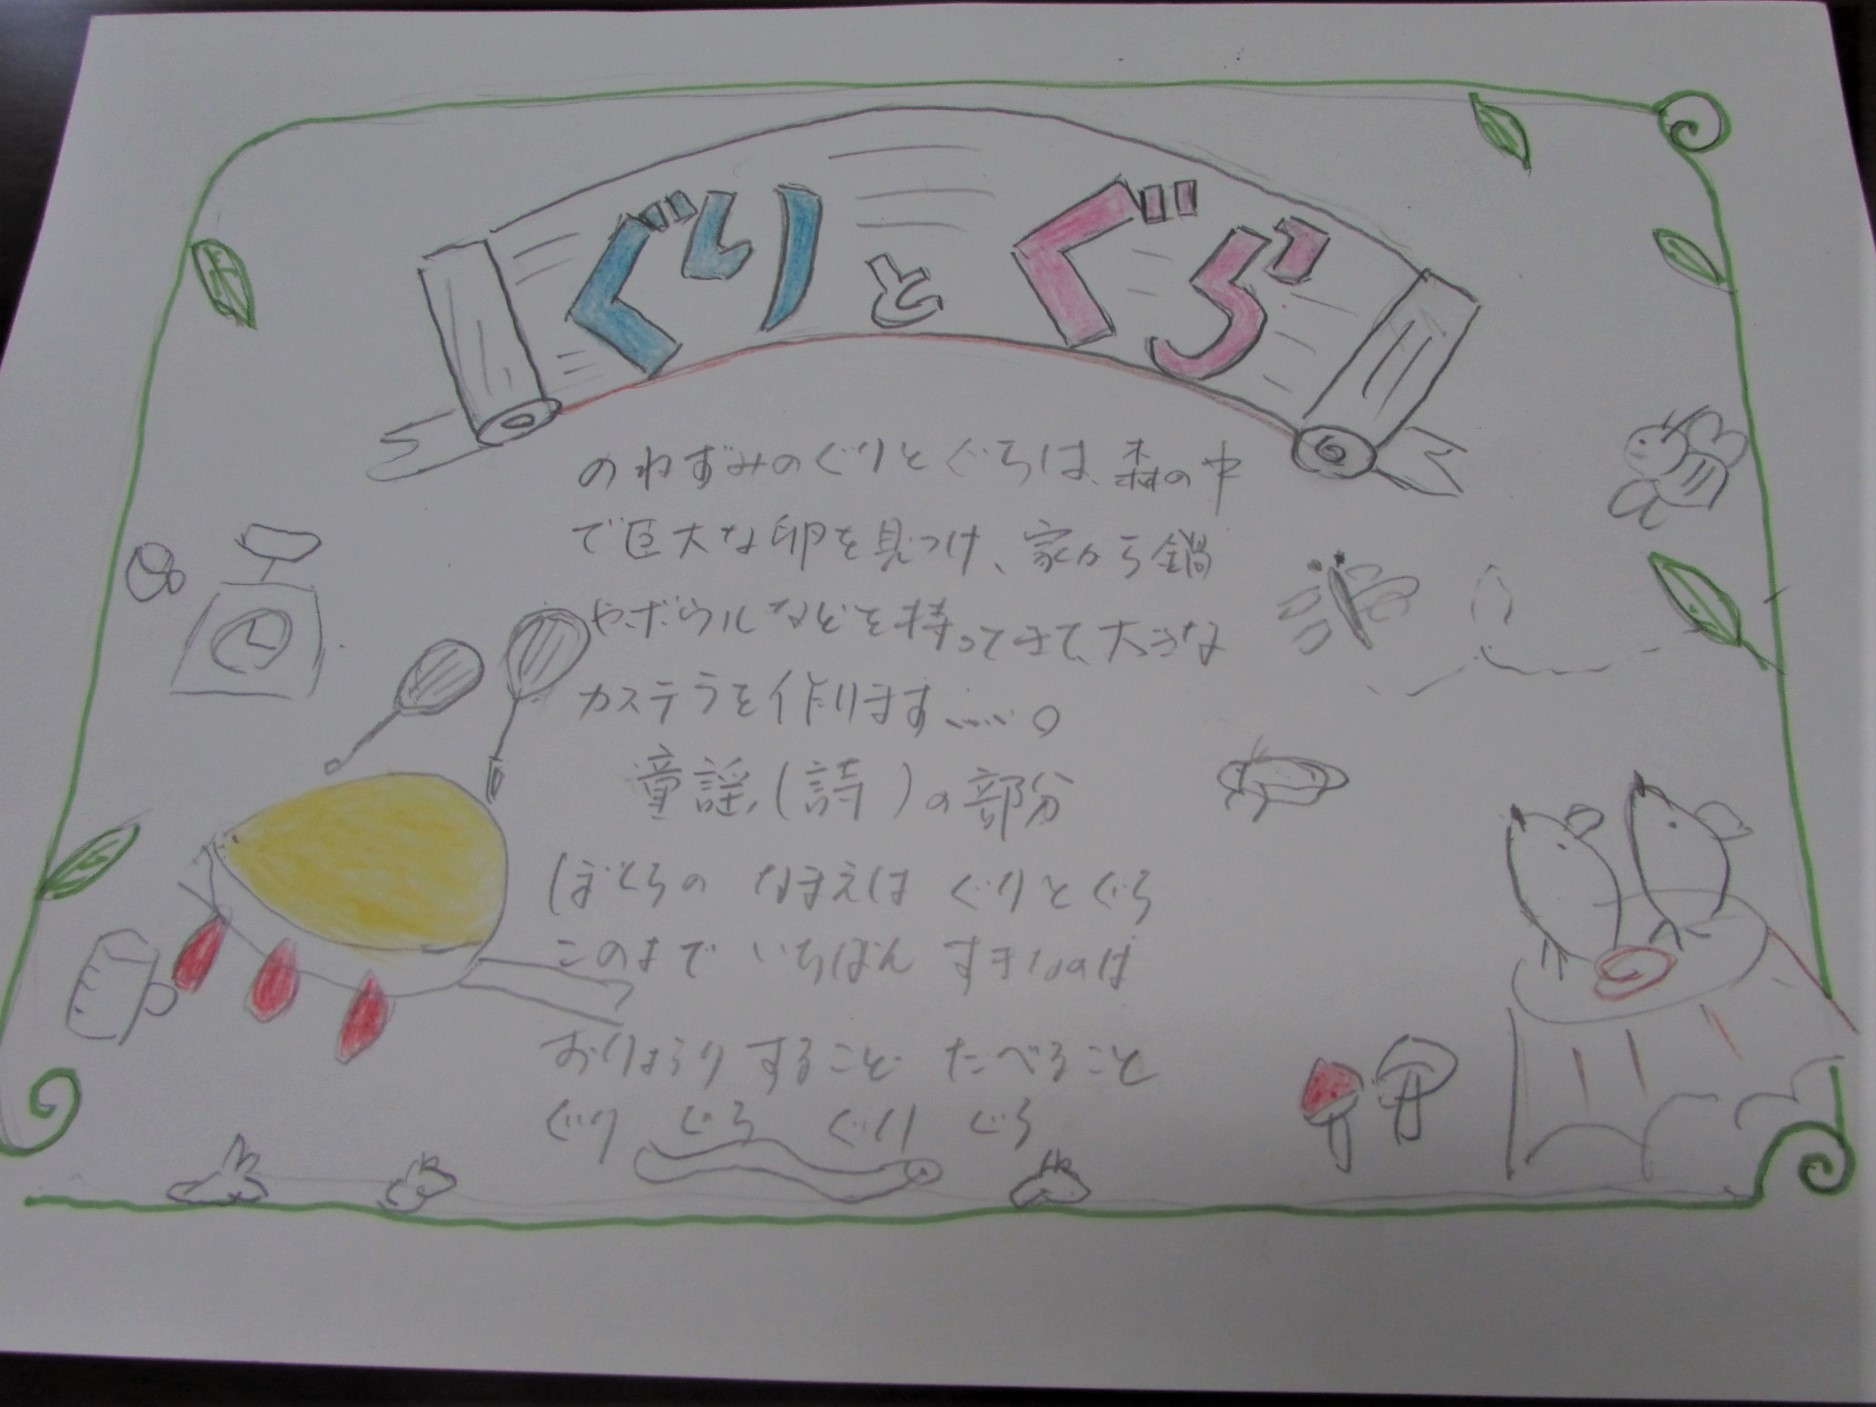 ぐりとぐら
のねずみのぐりとぐらは、森の中
で巨大な卵を見つけ、家から鍋
やボウルなどを持ってきて、大きな
カステラを作ります……。
童謡(詩)の部分
ぼくらの なまえは ぐりとぐら
このよで いちばん すきなのは
おりょうり すること たべること
ぐり ぐら ぐり ぐら